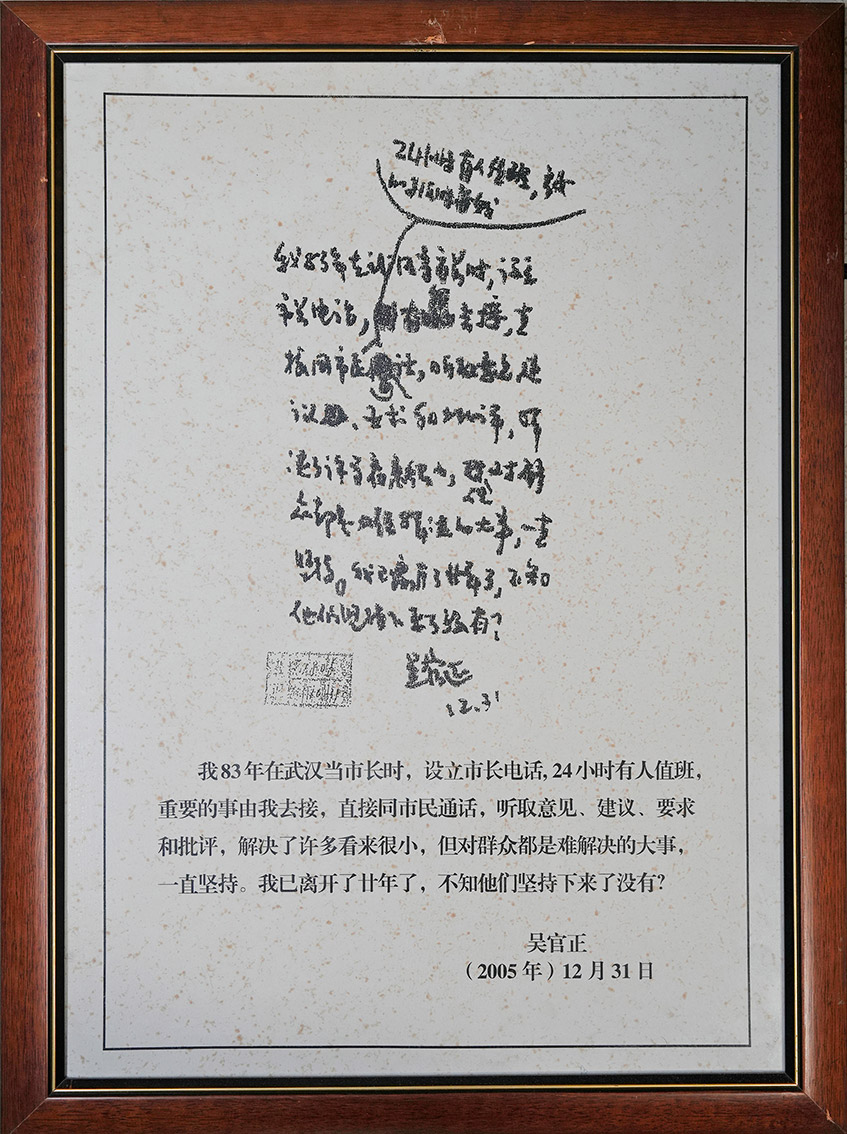 24小时有人值班，重要
我83年在武汉当市长时，设立
市长电话，去接，直
接同市民通话，听取意见、建
议、要求和批评，解
决了许多看来很小，但对群
众都是难解决的大事，一直
坚持。我已离开了廿年了，不知
他们坚持下来了没有？
吴官正
12.31
我83年在武汉当市长时，设立市长电话，24小时有人值班，
重要的事由我去接，直接同市民通话，听取意见、建议、要求
和批评，解决了许多看来很小，但对群众都是难解决的大事，
一直坚持。我已离开了廿年了，不知他们坚持下来了没有？
吴官正
（2005年）12月31日